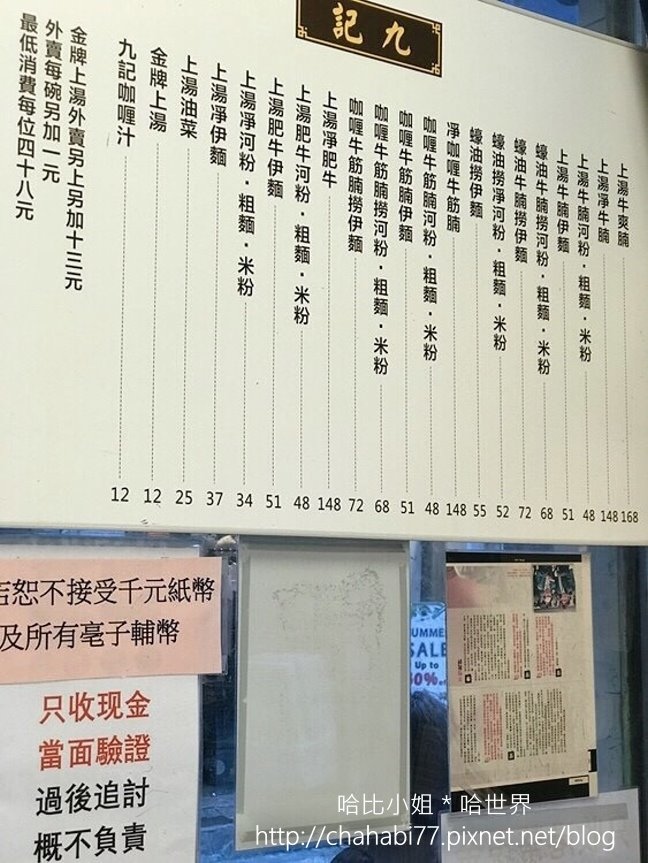 九記
上湯牛爽腩 168
上湯凈牛腩 148
上湯牛腩河粉．粗麵．米粉 48
上湯牛腩伊麵 51
蠔油牛腩撈河粉．粗麵．米粉 68
蠔油牛腩撈伊麵 72
蠔油撈凈河粉．粗麵．米粉 52
蠔油撈伊麵 55
凈咖喱牛筋腩 148
咖喱牛筋腩河粉．粗麵．米粉 48
咖喱牛筋腩伊麵 51
咖喱牛筋腩撈河粉．粗麵．米粉 68
咖喱牛筋腩撈伊麵 72
上湯凈肥牛 148
上湯肥牛河粉．粗麵．米粉 48
上湯肥牛伊麵 51
上湯凈河粉．粗麵．米粉 34
上湯凈伊麵 37
上湯油菜 25
金牌上湯 12
九記咖喱汁 12
金牌上湯外賣另上另加十三元
外賣每碗另加一元
最低消費每位四十八元
恕不接受千元紙幣
及所有毫子輔幣
只收现金
當面驗證
過後追討
概不負責
SALE
Up to
哈比小姐 * 哈世界
http://chahabi77.pixnet.net/blog